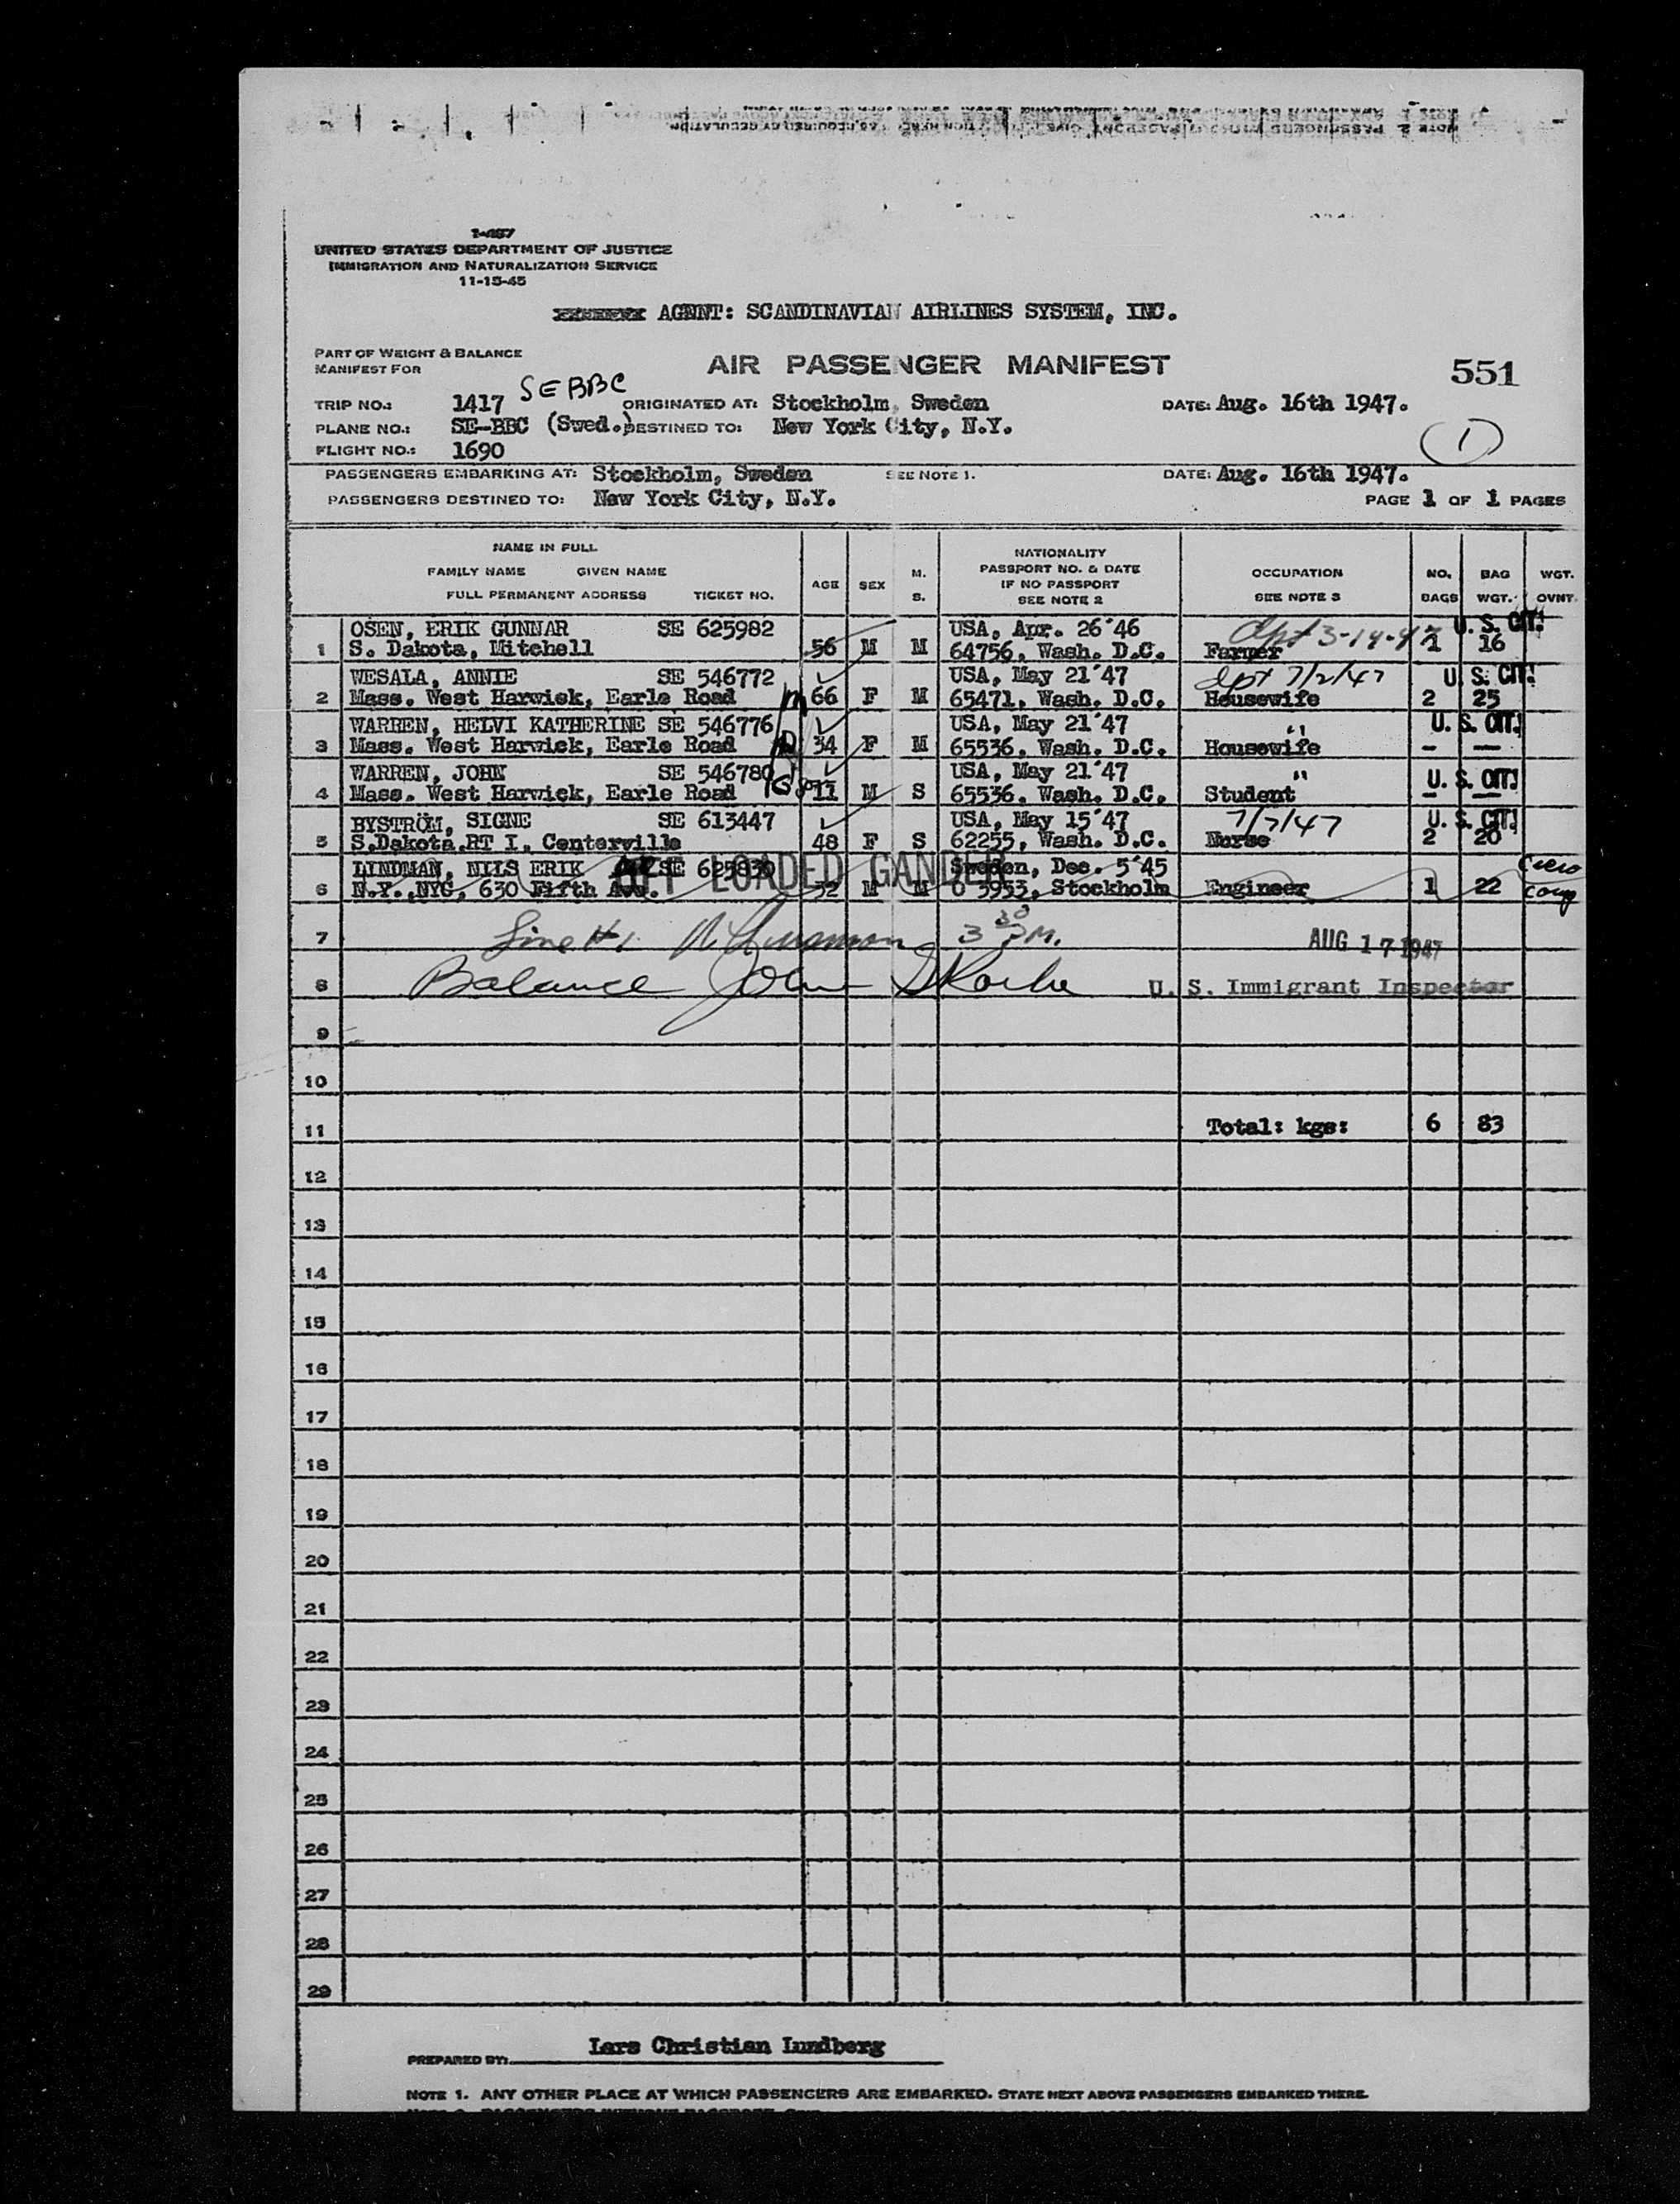 I-487
UNITED STATES DEPARTMENT OF JUSTICE
IMMIGRATION AND NATURALIZATION SERVICE
11-15-45
AGENT: SCANDINAVIAN AIRLINES SYSTEM, INC.
PART OF WEIGHT & BALANCE
MANIFEST FOR
AIR PASSENGER MANIFEST
551
SEBBC
TRIP NO.: 1417 ORIGINATED AT: Stockholm, Sweden DATE: Aug. 16th 1947.
PLANE NO.: SE-BBC (Swed.) DESTINED TO: New York City, N.Y.
1
FLIGHT NO.: 1690
PASSENGERS EMBARKING AT: Stockholm, Sweden SEE NOTE 1. DATE: Aug. 16th 1947.
PASSENGERS DESTINED TO: New York City, N.Y. PAGE 1 OF 1 PAGES
NAME IN FULL
FAMILY NAME GIVEN NAME
FULL PERMANENT ADDRESS TICKET NO.
AGE SEX M. S.
NATIONALITY
PASSPORT NO. & DATE
IF NO PASSPORT
SEE NOTE 2
OCCUPATION
SEE NOTE 3
NO. BAGS
BAG WGT.
WGT. OVNT.
OSEN, ERIK GUNNAR SE 625982 USA, Apr. 26'46 dpt 3-14-47 U. S. CIT.
1 S. Dakota, Mitchell 56 M M 64756, Wash. D.C. Farmer 1 16
WESALA, ANNIE SE 546772 USA, May 21'47 dpt 7/2/47 U. S. CIT.
2 Mass. West Harwick, Earle Road 66 F M 65471, Wash. D.C. Housewife 2 25
WARREN, HELVI KATHERINE SE 546776 USA, May 21'47 " U. S. CIT.
3 Mass. West Harwick, Earle Road 34 F M 65536, Wash. D.C. Housewife - —
WARREN, JOHN SE 546780 USA, May 21'47 " U. S. CIT.
4 Mass. West Harwick, Earle Road 11 M S 65536, Wash. D.C. Student - —
BYSTRÖM, SIGNE SE 613447 USA, May 15'47 7/7/47 U. S. CIT.
5 S.Dakota.RT I. Centerville 48 F S 62255, Wash. D.C. Nurse 2 20
LINDMAN, NILS ERIK SE 625830 Sweden, Dec. 5'45
OFF LOADED GANDER
6 N.Y.,NYC, 630 Fifth Ave. 32 M M O 3953, Stockholm Engineer 1 22
7 Line #1 3 30 PM. AUG 17 1947
8 Balance John U. S. Immigrant Inspector
9
10
11 Total: kgs: 6 83
12
13
14
15
16
17
18
19
20
21
22
23
24
25
26
27
28
29
PREPARED BY: Lars Christian Lundberg
NOTE 1. ANY OTHER PLACE AT WHICH PASSENGERS ARE EMBARKED. STATE NEXT ABOVE PASSENGERS EMBARKED THERE.